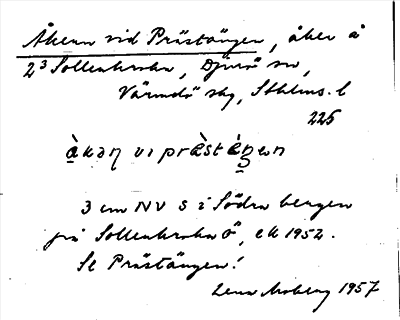 Åkern vid Prästängen, åker å
2³ Sollenkroka, Djurö sn,
Värmdö skg, Sthlms. l
225
àkəɳ vi prästäŋən
3 cm NV S i Södra bergen
på Sollenkroka ö, ek 1952.
Se Prästängen!
Lena Moberg 1957